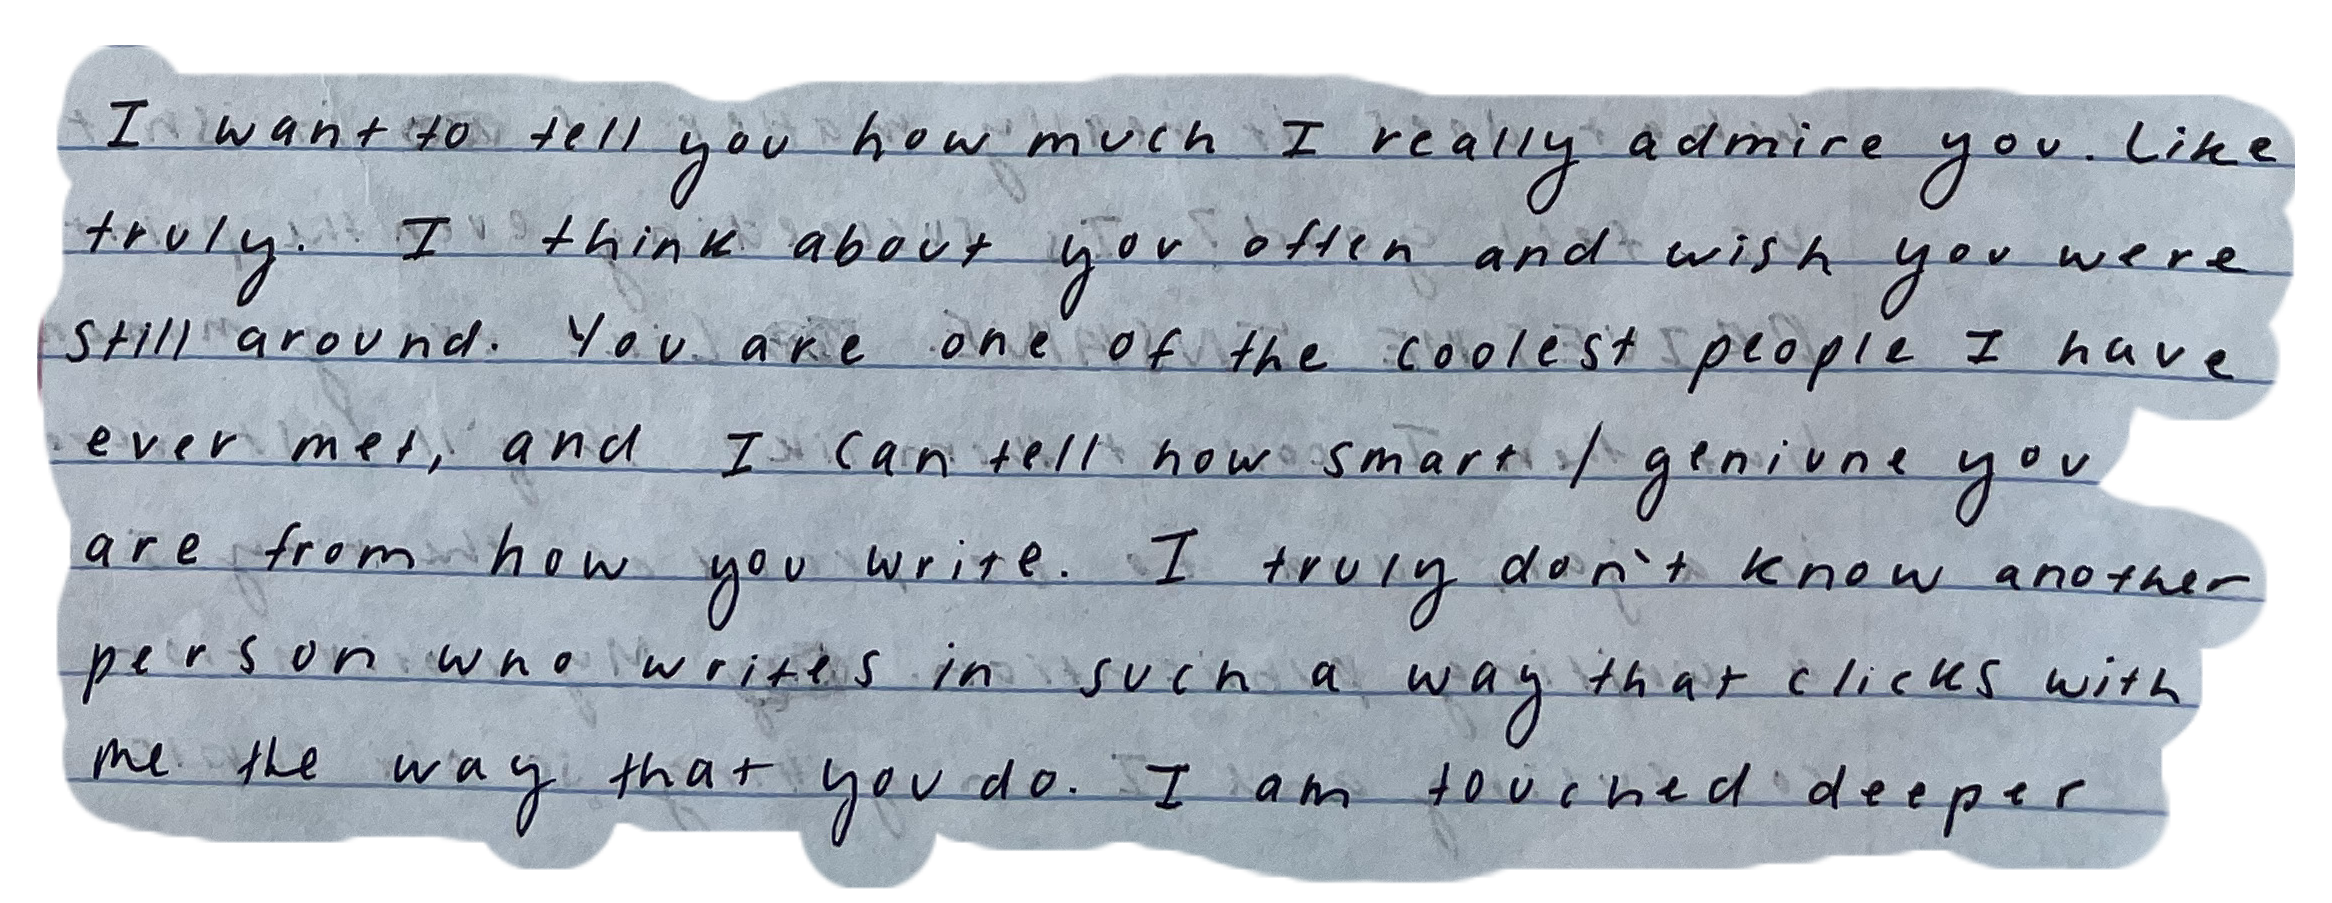 I want to tell you how much I really admire you. Like
truly. I think about you often and wish you were
still around. You are one of the coolest people I have
ever met, and I can tell how smart / geniune you
are from how you write. I truly don't know another
person who writes in such a way that clicks with
me the way that you do. I am touched deeper